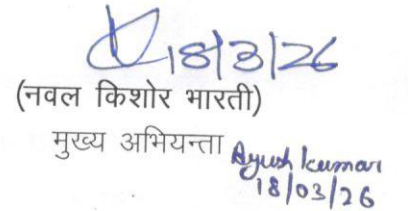 18/3/26
(नवल किशोर भारती)
मुख्य अभियन्ता
Ayush kumar
18/03/26